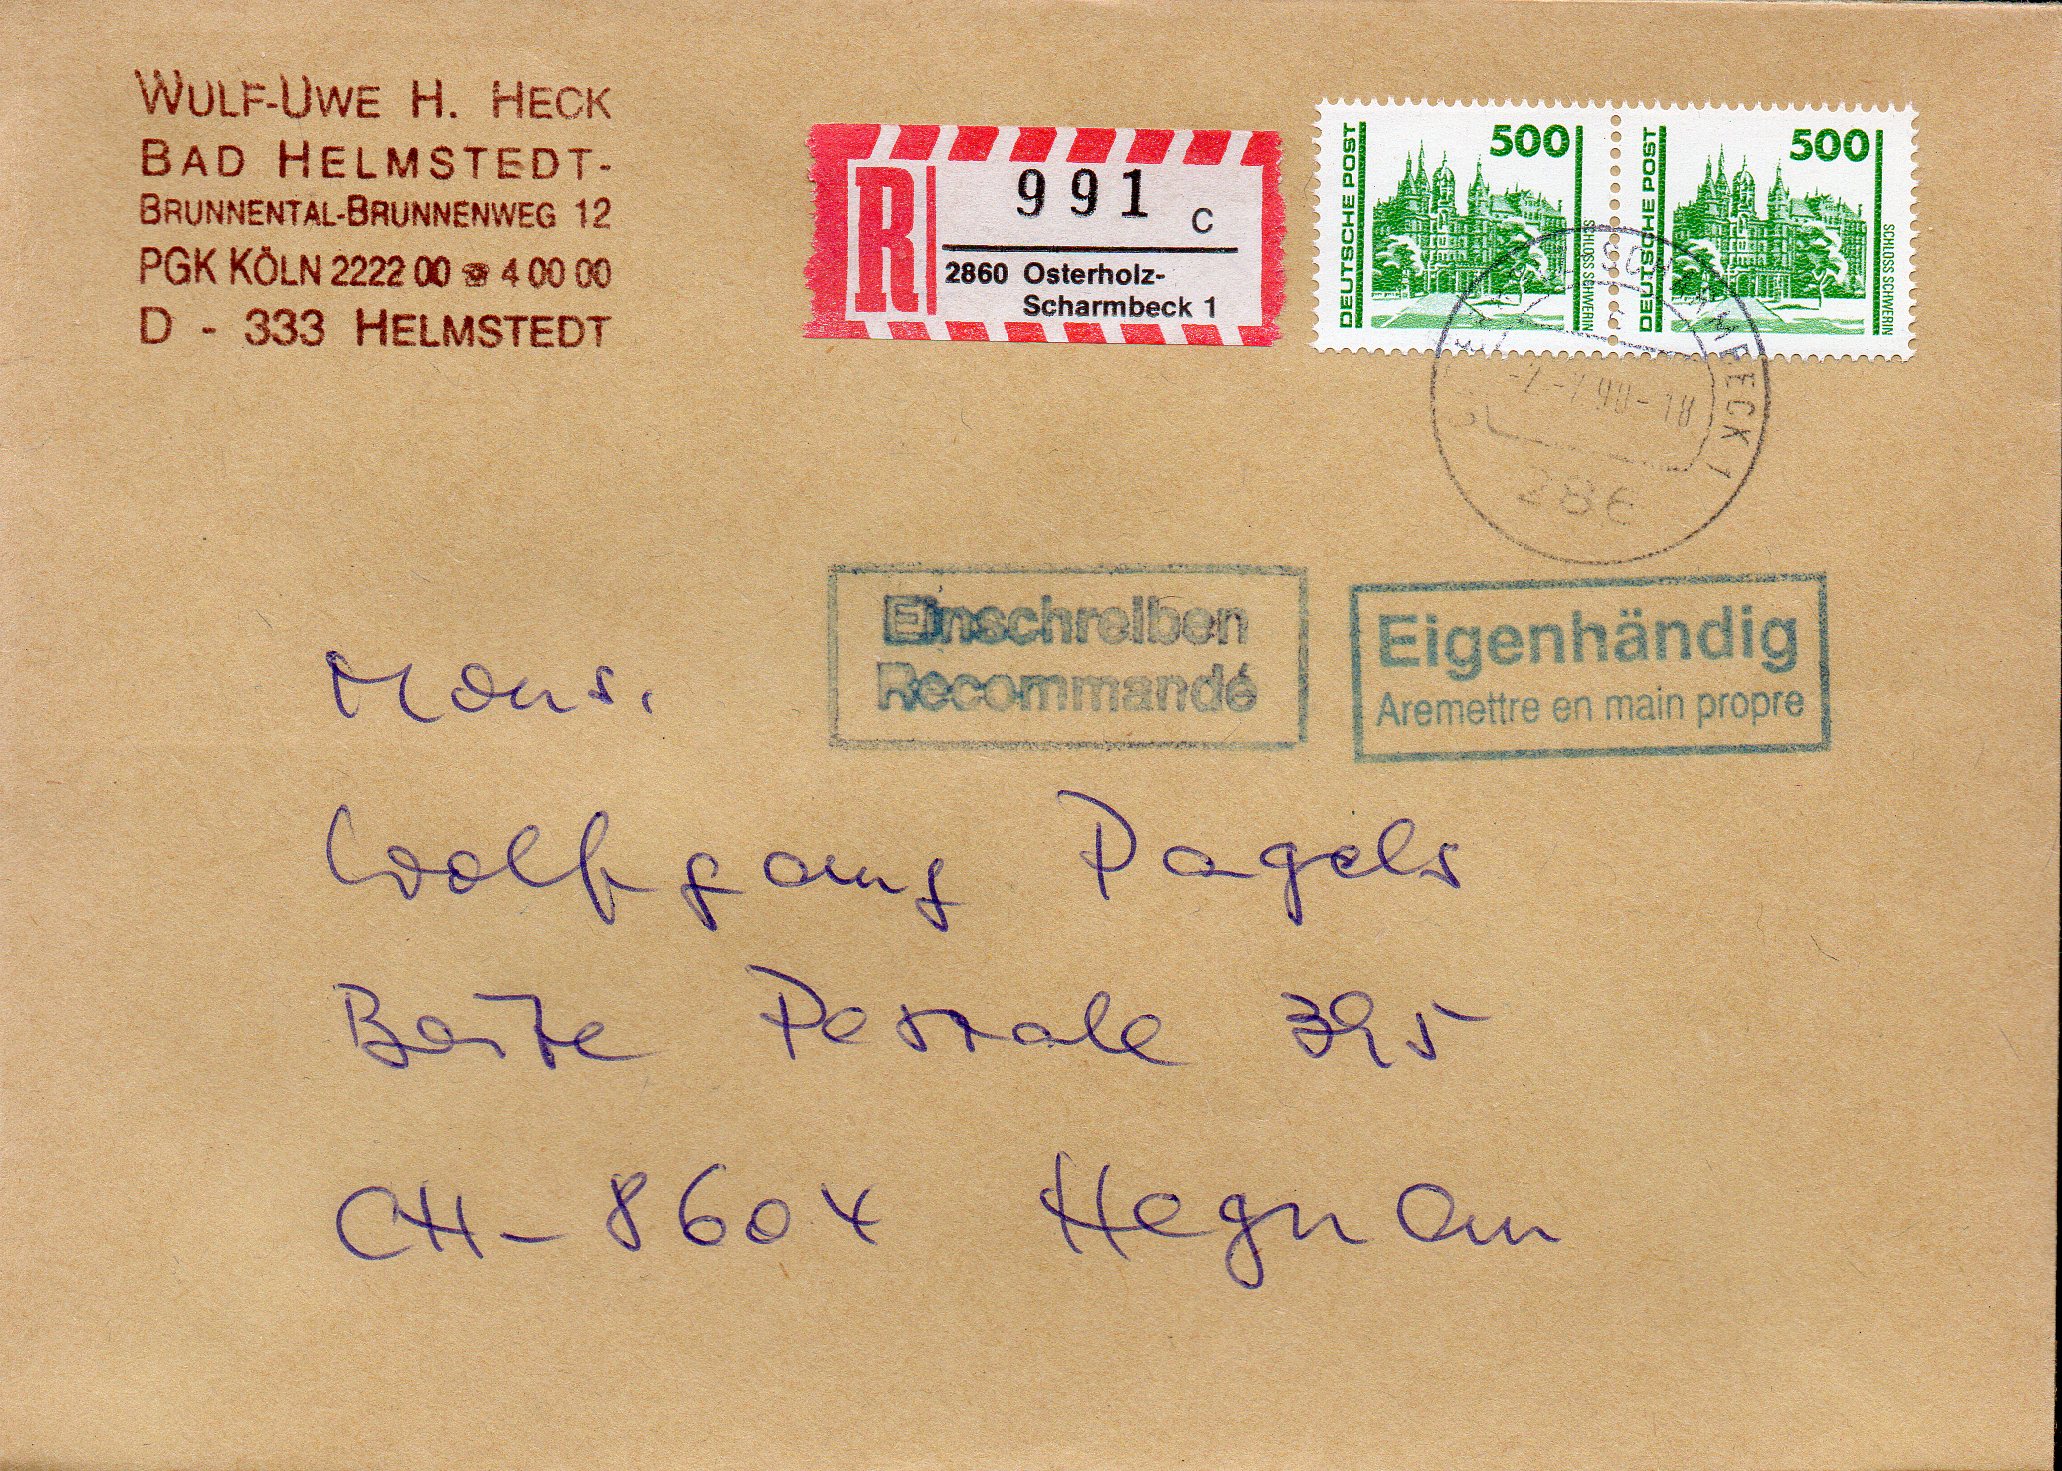 WULF-UWE H. HECK
BAD HELMSTEDT-
BRUNNENTAL-BRUNNENWEG 12
PGK KÖLN 2222 00 ☎ 4 00 00
D - 333 HELMSTEDT
R
991 c
2860 Osterholz-
Scharmbeck 1
DEUTSCHE POST
500
SCHLOSS SCHWERIN
DEUTSCHE POST
500
SCHLOSS SCHWERIN
MBECK 1
-18
286
Einschreiben
Recommandé
Eigenhändig
Aremettre en main propre
Mons.
Wolfgang Pagels
Boite Postale 395
CH-8604 Hegnau